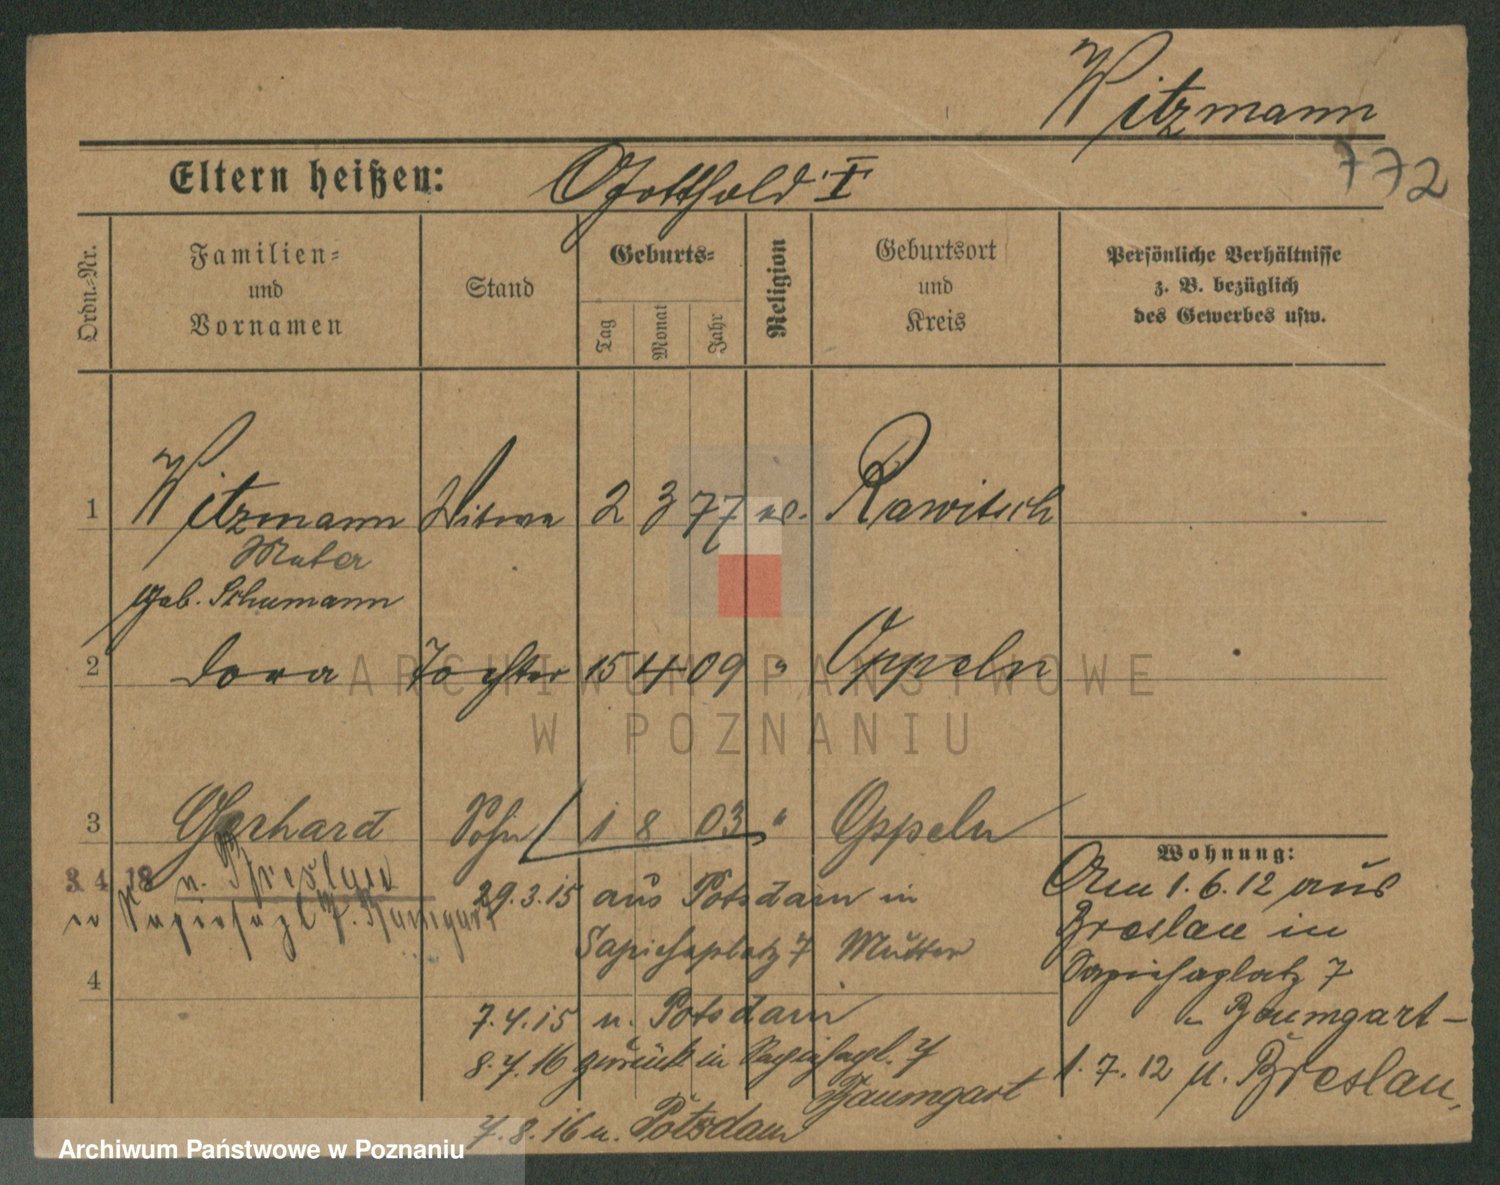 Witzmann
772
Eltern heißen: Gotthold I
Ordn.-Nr.
Familien- und Vornamen
Stand
Geburts-
Tag
Monat
Jahr
Religion
Geburtsort und Kreis
Persönliche Verhältnisse z. B. bezüglich des Gewerbes usw.
1 Witzmann Witwe 2 3 77 ev. Rawitsch
geb. Schumann
2 Dora Tochter 15 4 09 " Oppeln
3 Gerhard Sohn 1 8 03 " Oppeln
3 4 18 n. Breslau
in Baumgart
4
29.3.15 aus Potsdam in
Sapiehaplatz 7 Mutter
7.4.15 n. Potsdam
8.7.16 zurück in Sapiehapl. 7
Baumgart
7.8.16 n. Potsdam
Wohnung:
Am 1.6.12 aus
Breslau in
Sapiehaplatz 7
Baumgart-
1.7.12 n. Breslau
ARCHIWUM PAŃSTWOWE
W POZNANIU
Archiwum Państwowe w Poznaniu